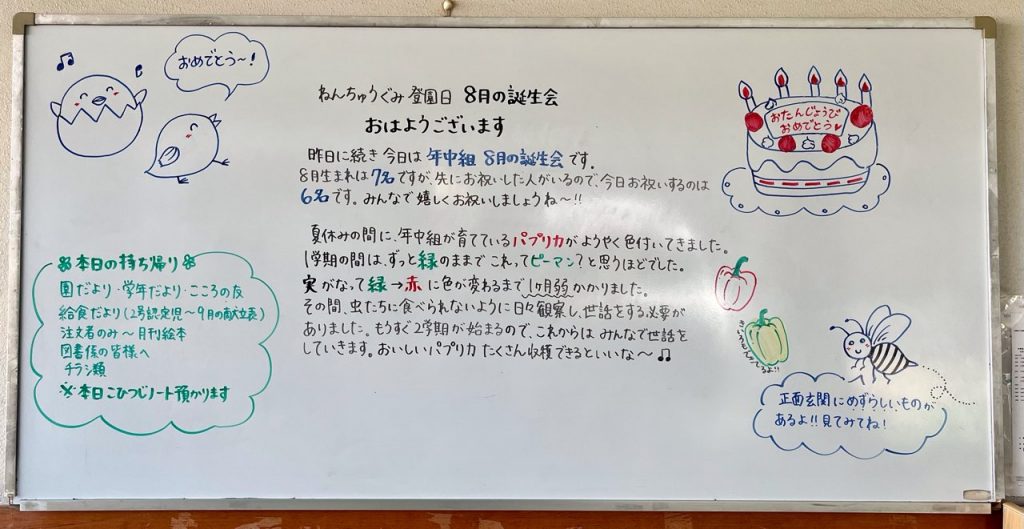 おめでとう〜！
ねんちゅうぐみ 登園日 8月の誕生会
おはようございます
昨日に続き 今日は 年中組 8月の誕生会 です。
8月生まれは7名ですが、先にお祝いした人がいるので、今日お祝いするのは
6名です。みんなで 嬉しくお祝いしましょうね〜!!
おたんじょうび
おめでとう♥
夏休みの間に、年中組が育てているパプリカがようやく色付いてきました。
1学期の間は、ずっと緑のままで これってピーマン？と思うほどでした。
実がなって緑→赤に色が変わるまで1ヶ月弱かかりました。
その間、虫たちに食べられないように日々観察し、世話をする必要が
ありました。もうすぐ2学期が始まるので、これからは みんなで世話を
していきます。おいしいパプリカ たくさん収穫できるといいな〜♫
本日の持ち帰り
園だより・学年だより・こころの友
給食だより(2号認定児〜9月の献立表)
注文者のみ〜月刊絵本
図書係の皆様へ
チラシ類
※本日こひつじノート預かります
正面玄関にめずらしいものが
あるよ!!見てみてね！